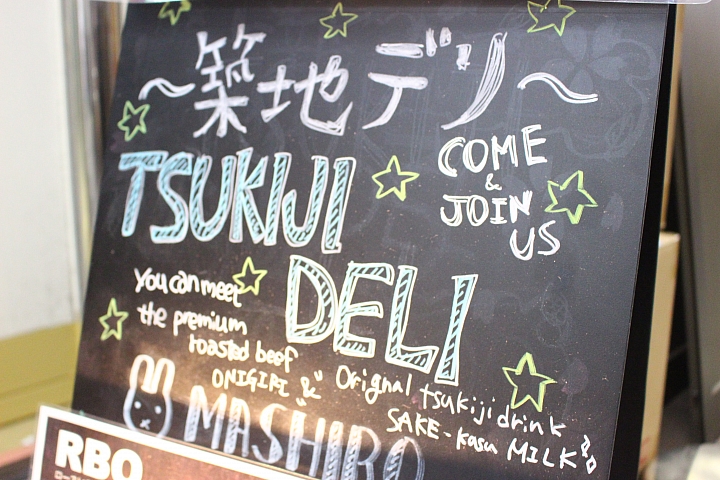 ～築地デリ～
TSUKIJI
COME
&
JOIN
US
DELI
you can meet
the premium
roasted beef
ONIGIRI & "Orignal tsukiji drink
SAKE-kasu MILK"
MASHIRO
RBO